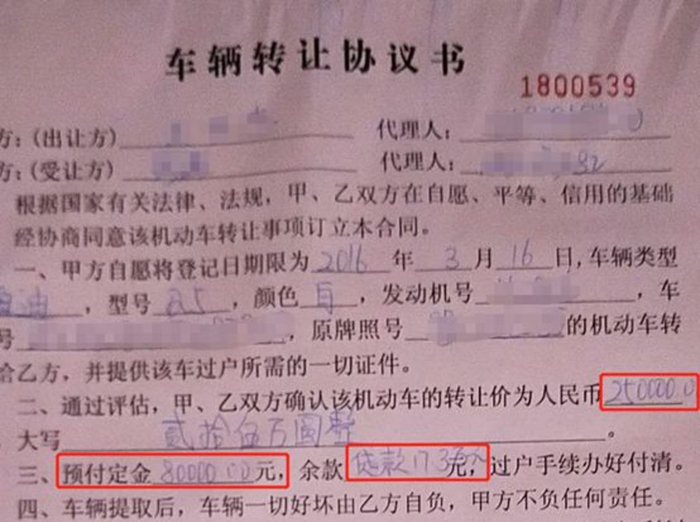 车辆转让协议书
1800539
方:(出让方) 代理人:
方:(受让方) 代理人:
根据国家有关法律、法规,甲、乙双方在自愿、平等、信用的基础
经协商同意该机动车转让事项订立本合同。
一、甲方自愿将登记日期限为 2016 年 3 月 16 日,车辆类型
油,型号 ,颜色 白 ,发动机号 ,车
号 ,原牌照号 的机动车转
给乙方,并提供该车过户所需的一切证件。
二、通过评估,甲、乙双方确认该机动车的转让价为人民币 250000.0
大写 贰拾伍万圆整 。
三、预付定金 80000.00 元,余款 贷款 元,过户手续办好付清。
四、车辆提取后,车辆一切好坏由乙方自负,甲方不负任何责任。